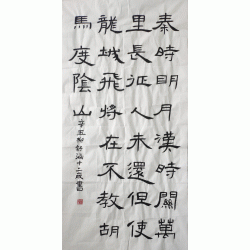 秦時明月漢時關萬
里長征人未還但使
龍城飛將在不教胡
馬度陰山
辛丑和舒涵十二歲書